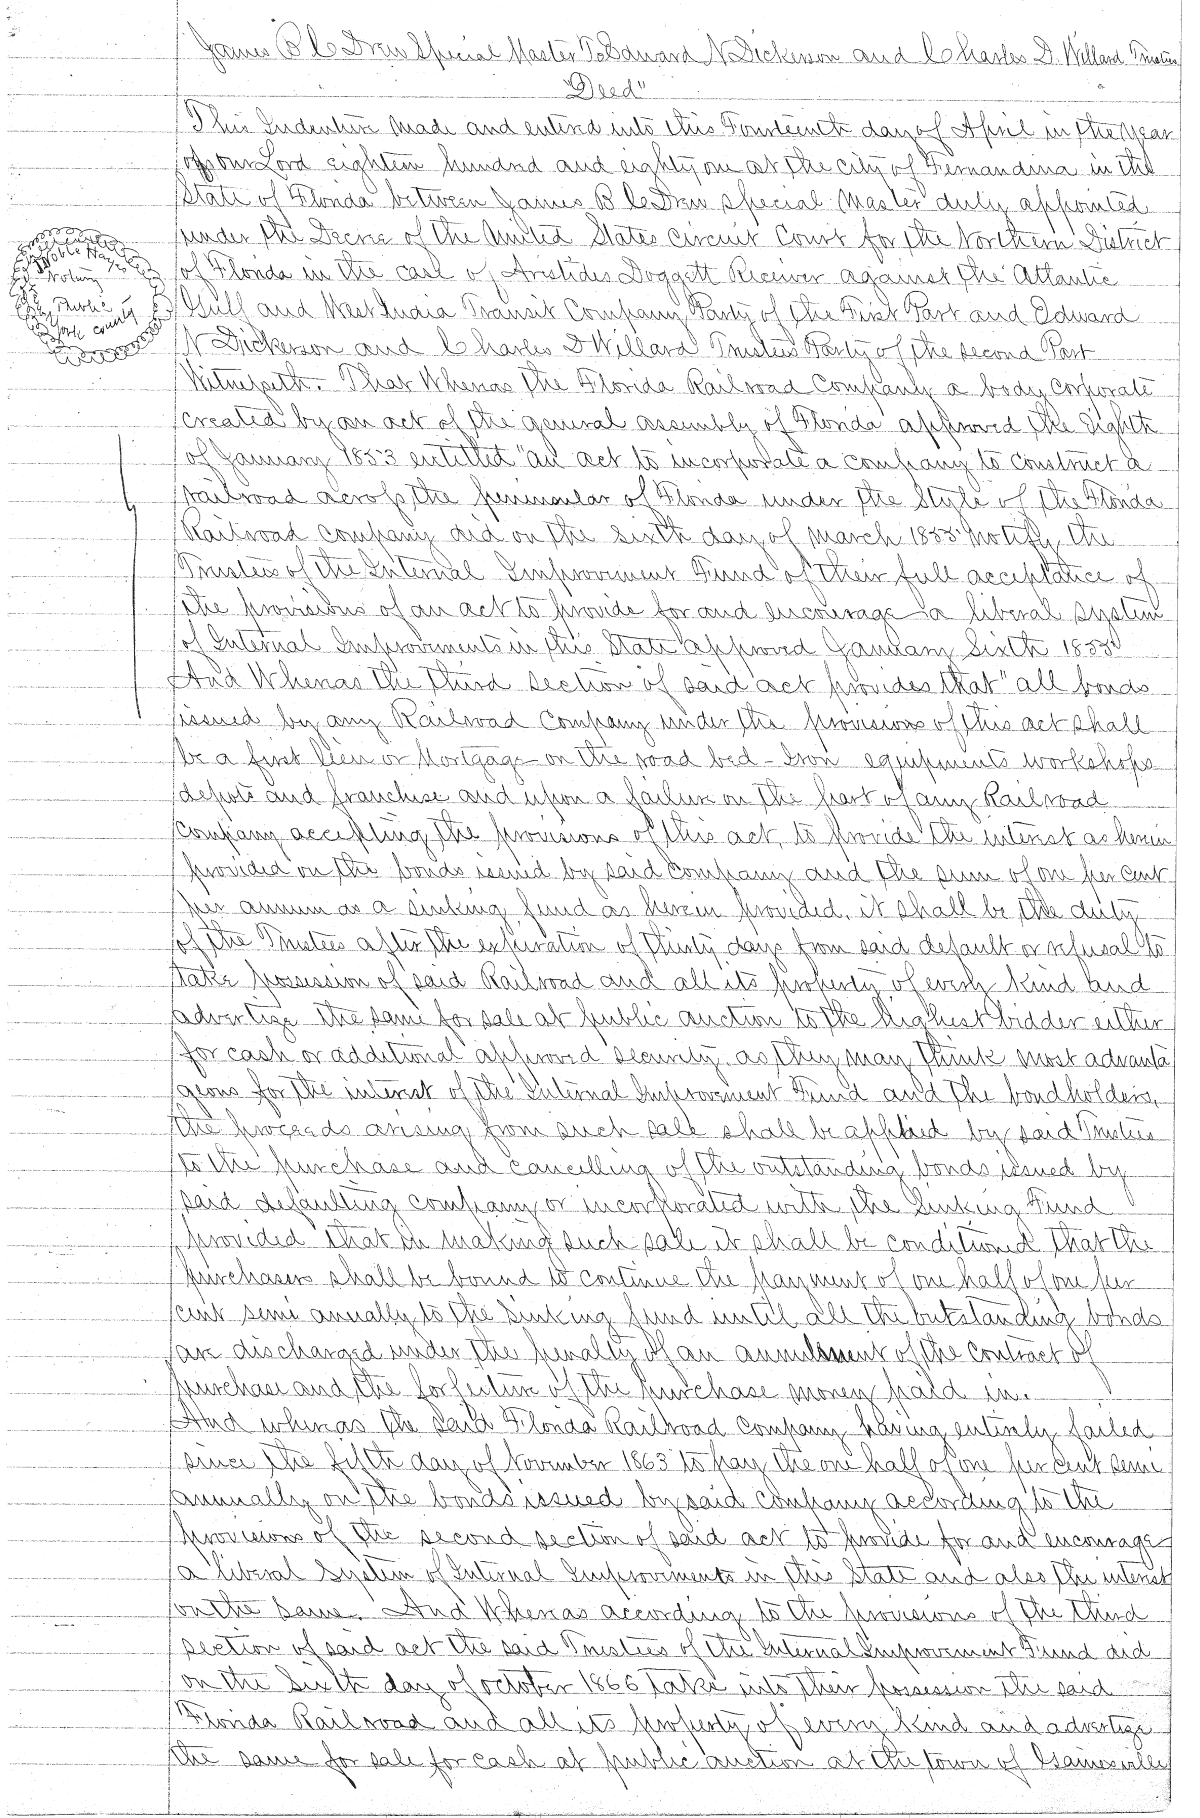 James B C Drew Special Master To Edward N Dickerson and Charles D. Willard Trustees
"Deed"
This Indenture made and entered into this Fourteenth day of April in the year
of our Lord eighteen hundred and eighty one at the city of Fernandina in the
State of Florida between James B C Drew special Master duly appointed
under the Decree of the United States Circuit Court for the Northern District
of Florida in the case of Aristides Doggett Receiver against the Atlantic
Gulf and West India Transit Company Party of the First Part and Edward
N Dickerson and Charles D Willard Trustees Party of the second Part
Witnesseth. That Whereas the Florida Railroad Company a body corporate
created by an act of the general assembly of Florida approved the Eighth
of January 1853 entitled "an act to incorporate a company to construct a
railroad across the peninsular of Florida under the Style of the Florida
Railroad company did on the sixth day of March 1855 Notify the
Trustees of the Internal Improvement Fund of their full acceptance of
the provisions of an act to provide for and encourage a liberal system
of Internal Improvements in this State approved January Sixth 1855
And Whereas the third section of said act provides that "all bonds
issued by any Railroad Company under the provisions of this act shall
be a first lien or Mortgage on the road bed - Iron equipments workshops
depots and franchise and upon a failure on the part of any Railroad
Company accepting the provisions of this act, to provide the interest as herein
provided on the bonds issued by said company and the sum of one per cent
per annum as a sinking fund as herein provided, it shall be the duty
of the Trustees after the expiration of thirty days from said default or refusal to
take possession of said Railroad and all its property of every kind and
advertize the same for sale at public auction to the highest bidder either
for cash or additional approved security as they may think most advanta
geous for the interest of the Internal Improvement Fund and the bondholders,
the proceeds arising from such sale shall be applied by said Trustees
to the purchase and cancelling of the outstanding bonds issued by
said defaulting company or incorporated with the Sinking Fund
provided that in making such sale it shall be conditioned that the
purchasers shall be bound to continue the payment of one half of one per
cent semi anually to the Sinking fund until all the outstanding bonds
are discharged under the penalty of an annulment of the contract of
purchase and the forfeiture of the purchase money paid in.
And whereas the said Florida Railroad Company having entirely failed
since the fifth day of November 1863 to pay the one half of one per cent semi
annually on the bonds issued by said company according to the
provisions of the second section of said act to provide for and encourage
a liberal system of Internal Improvements in this State and also the interest
on the same. And Whereas according to the provisions of the third
section of said act the said Trustees of the Internal Improvement Fund did
on the Sixth day of october 1866 take into their possession the said
Florida Railroad and all its property of every kind and advertize
the same for sale for cash at public auction at the town of Gainesville
Noble Hayes
Notary
Public
York County